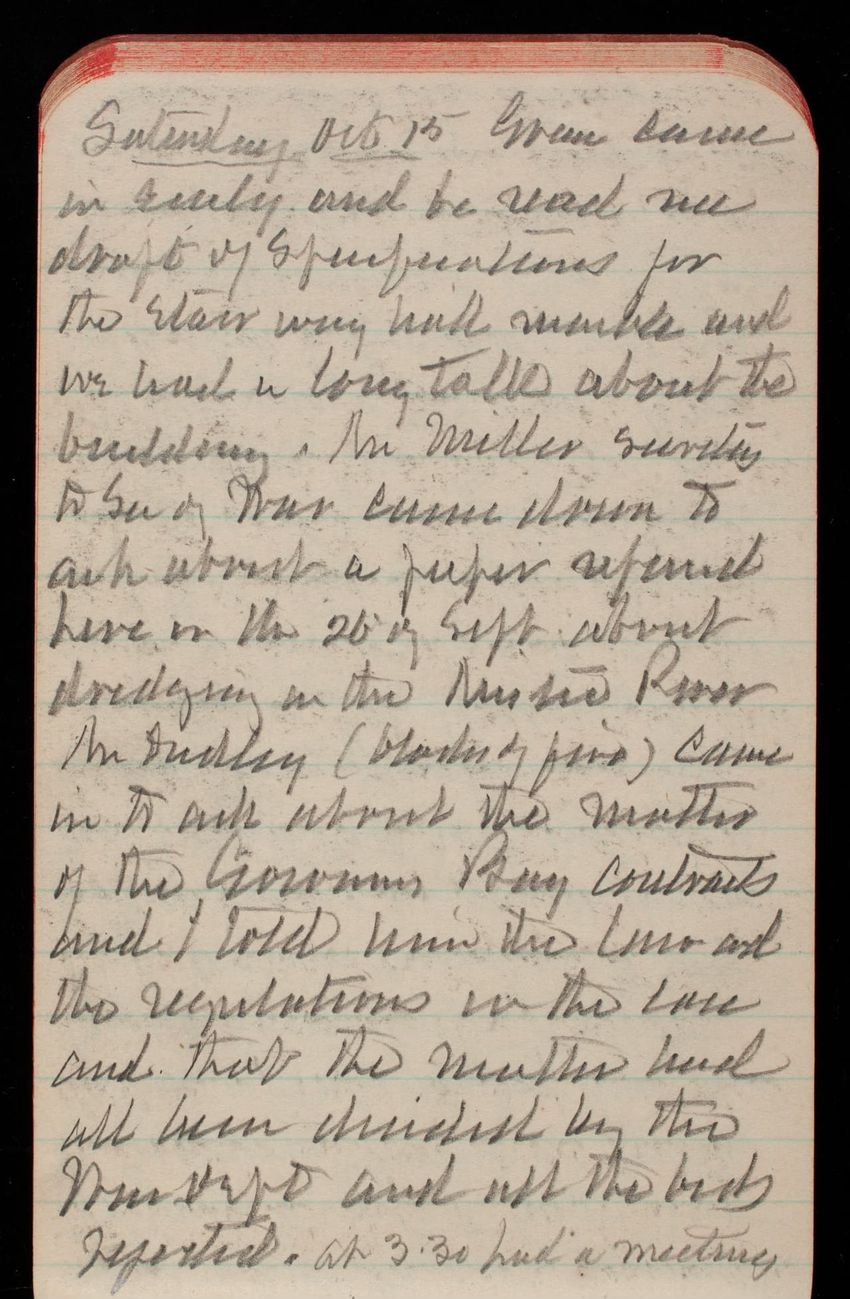 Saturday Oct 15 Green came
in early and he read me
draft of Specifications for
the Stair way hall marble and
we had a long talk about the
building. Mr Miller Secretary
to Sec of War came down to
ask about a paper referred
here on the 26 of Sept about
dredging in the River
Mr Dudley ( ) came
in to ask about the matter
of the Gowanus Bay contracts
and I told him the law and
the regulations in the case
and that the matter had
all been decided by the
War Dept and all the bids
rejected. at 3.30 had a meeting